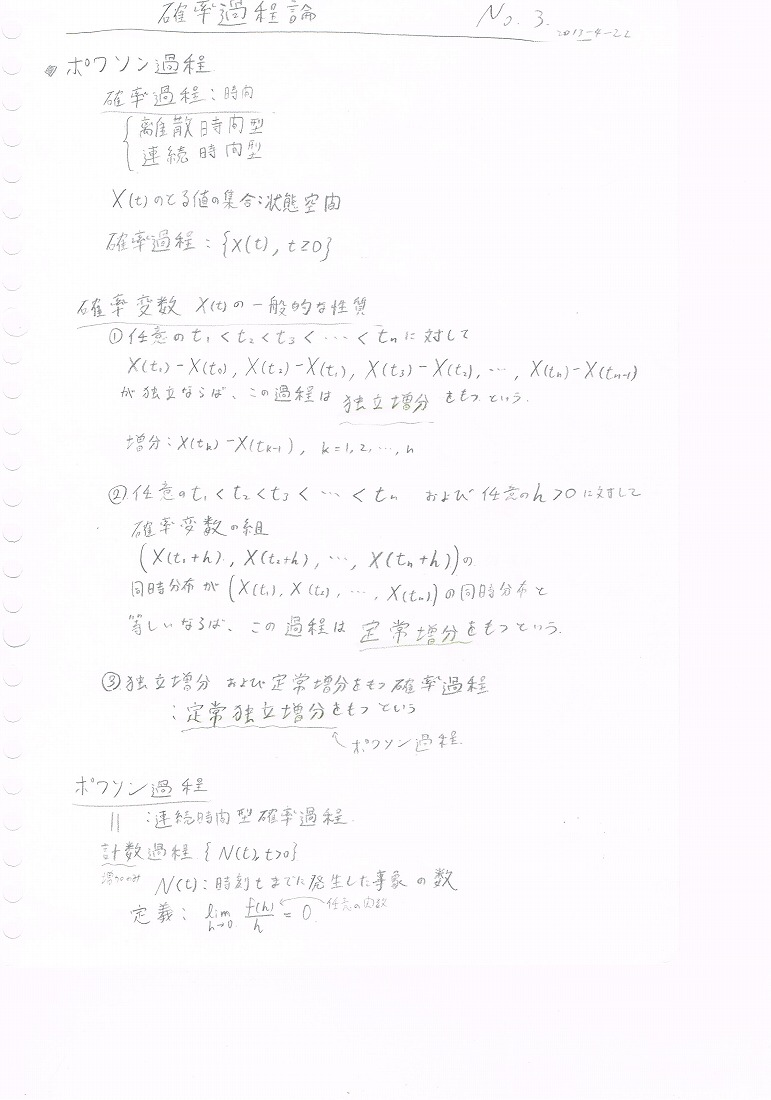 確率過程論 No. 3.
ポワソン過程
確率過程：時間
離散時間型
連続時間型
X(t)のとる値の集合：状態空間
確率過程：{X(t), t≥0}
確率変数 X(t)の一般的な性質
① 任意の t₁ < t₂ < t₃ < … < tₙ に対して
X(t₁)−X(t₀), X(t₂)−X(t₁), X(t₃)−X(t₂), …, X(tₙ)−X(tₙ₋₁)
が独立ならば、この過程は 独立増分 をもつという.
増分：X(tₖ)−X(tₖ₋₁), k=1,2,…,n
② 任意の t₁ < t₂ < t₃ < … < tₙ および 任意の h>0 に対して
確率変数の組
(X(t₁+h), X(t₂+h), …, X(tₙ+h))の
同時分布が (X(t₁), X(t₂), …, X(tₙ))の同時分布と
等しいならば、この過程は 定常増分をもつという.
③ 独立増分 および定常増分をもつ確率過程
：定常独立増分をもつという
ポワソン過程.
ポワソン過程
|| ：連続時間型確率過程.
計数過程 { N(t), t>0}
N(t)：時刻tまでに発生した事象の数
定義： lim h→0 f(h)/h = 0. 任意の関数